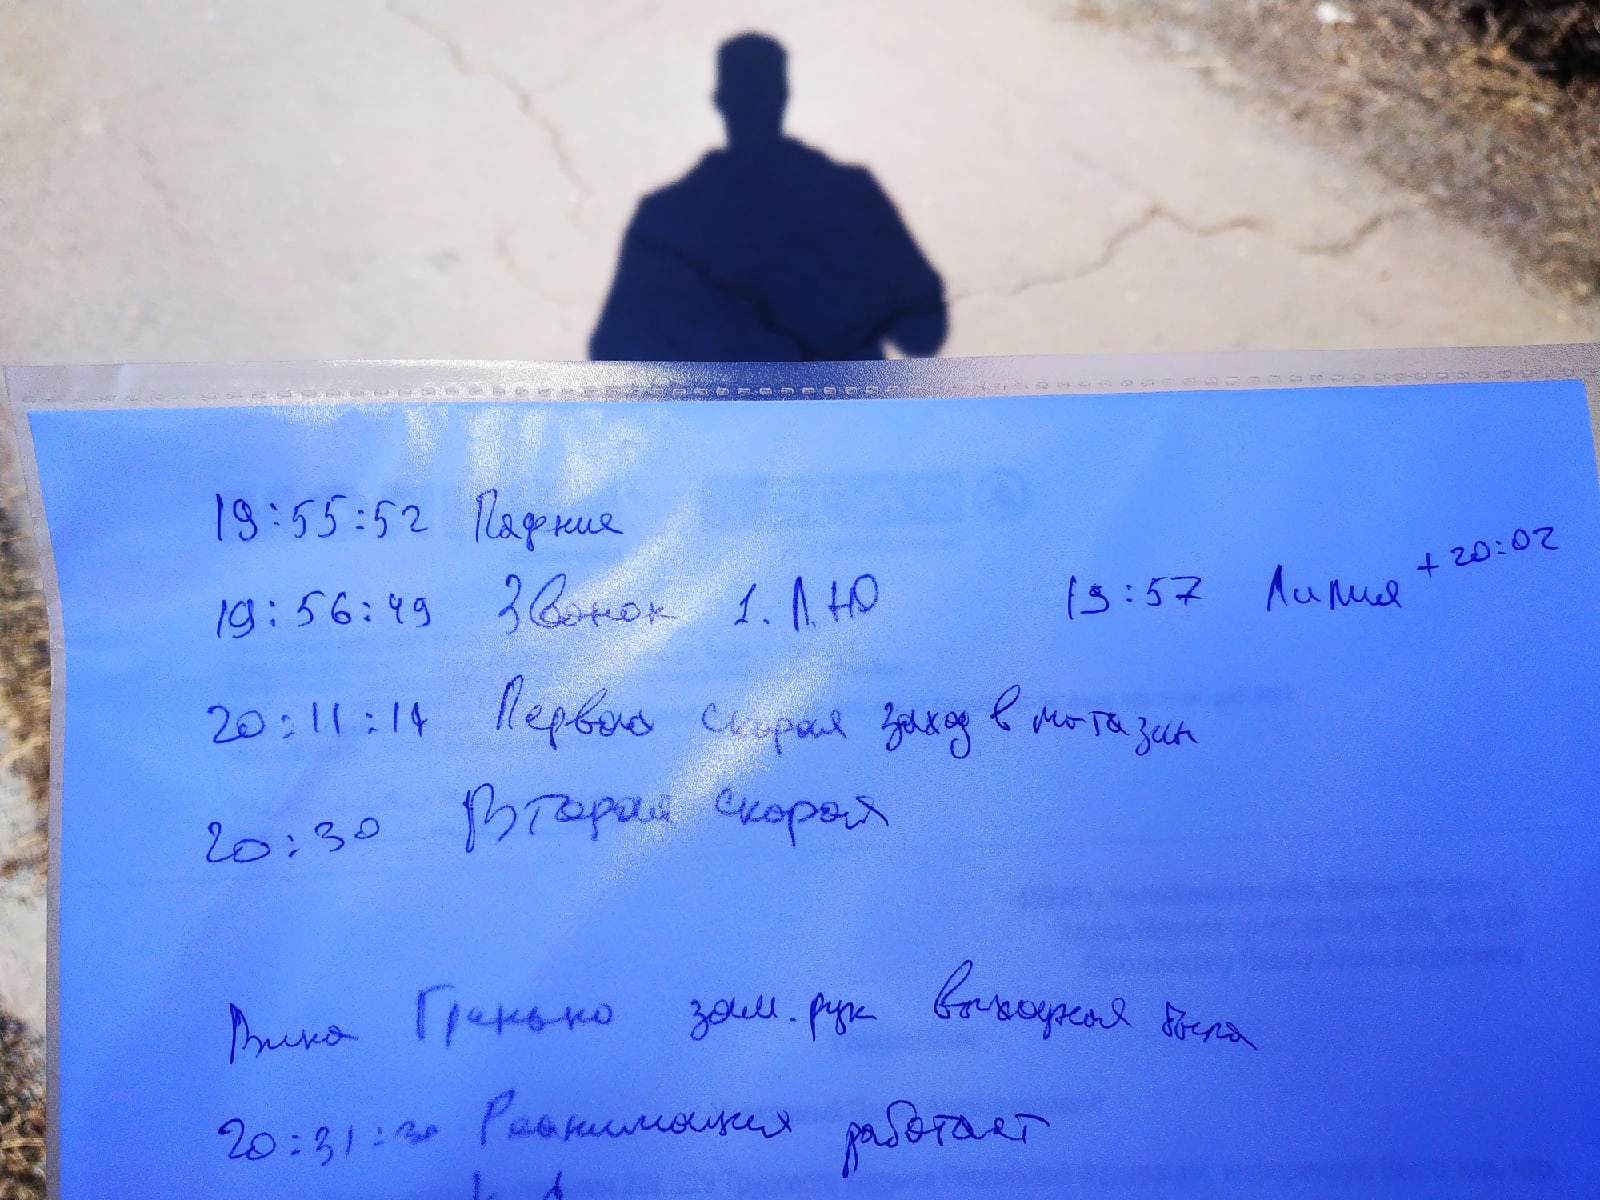 19:55:52 Падение
19:56:49 Звонок 1. Л.Ю 19:57 Лилия + 20:02
20:11:14 Первая скорая заход в магазин
20:30 Вторая скорая
Вика Гринько зам. рук выходная была
20:31:30 Реанимация работает